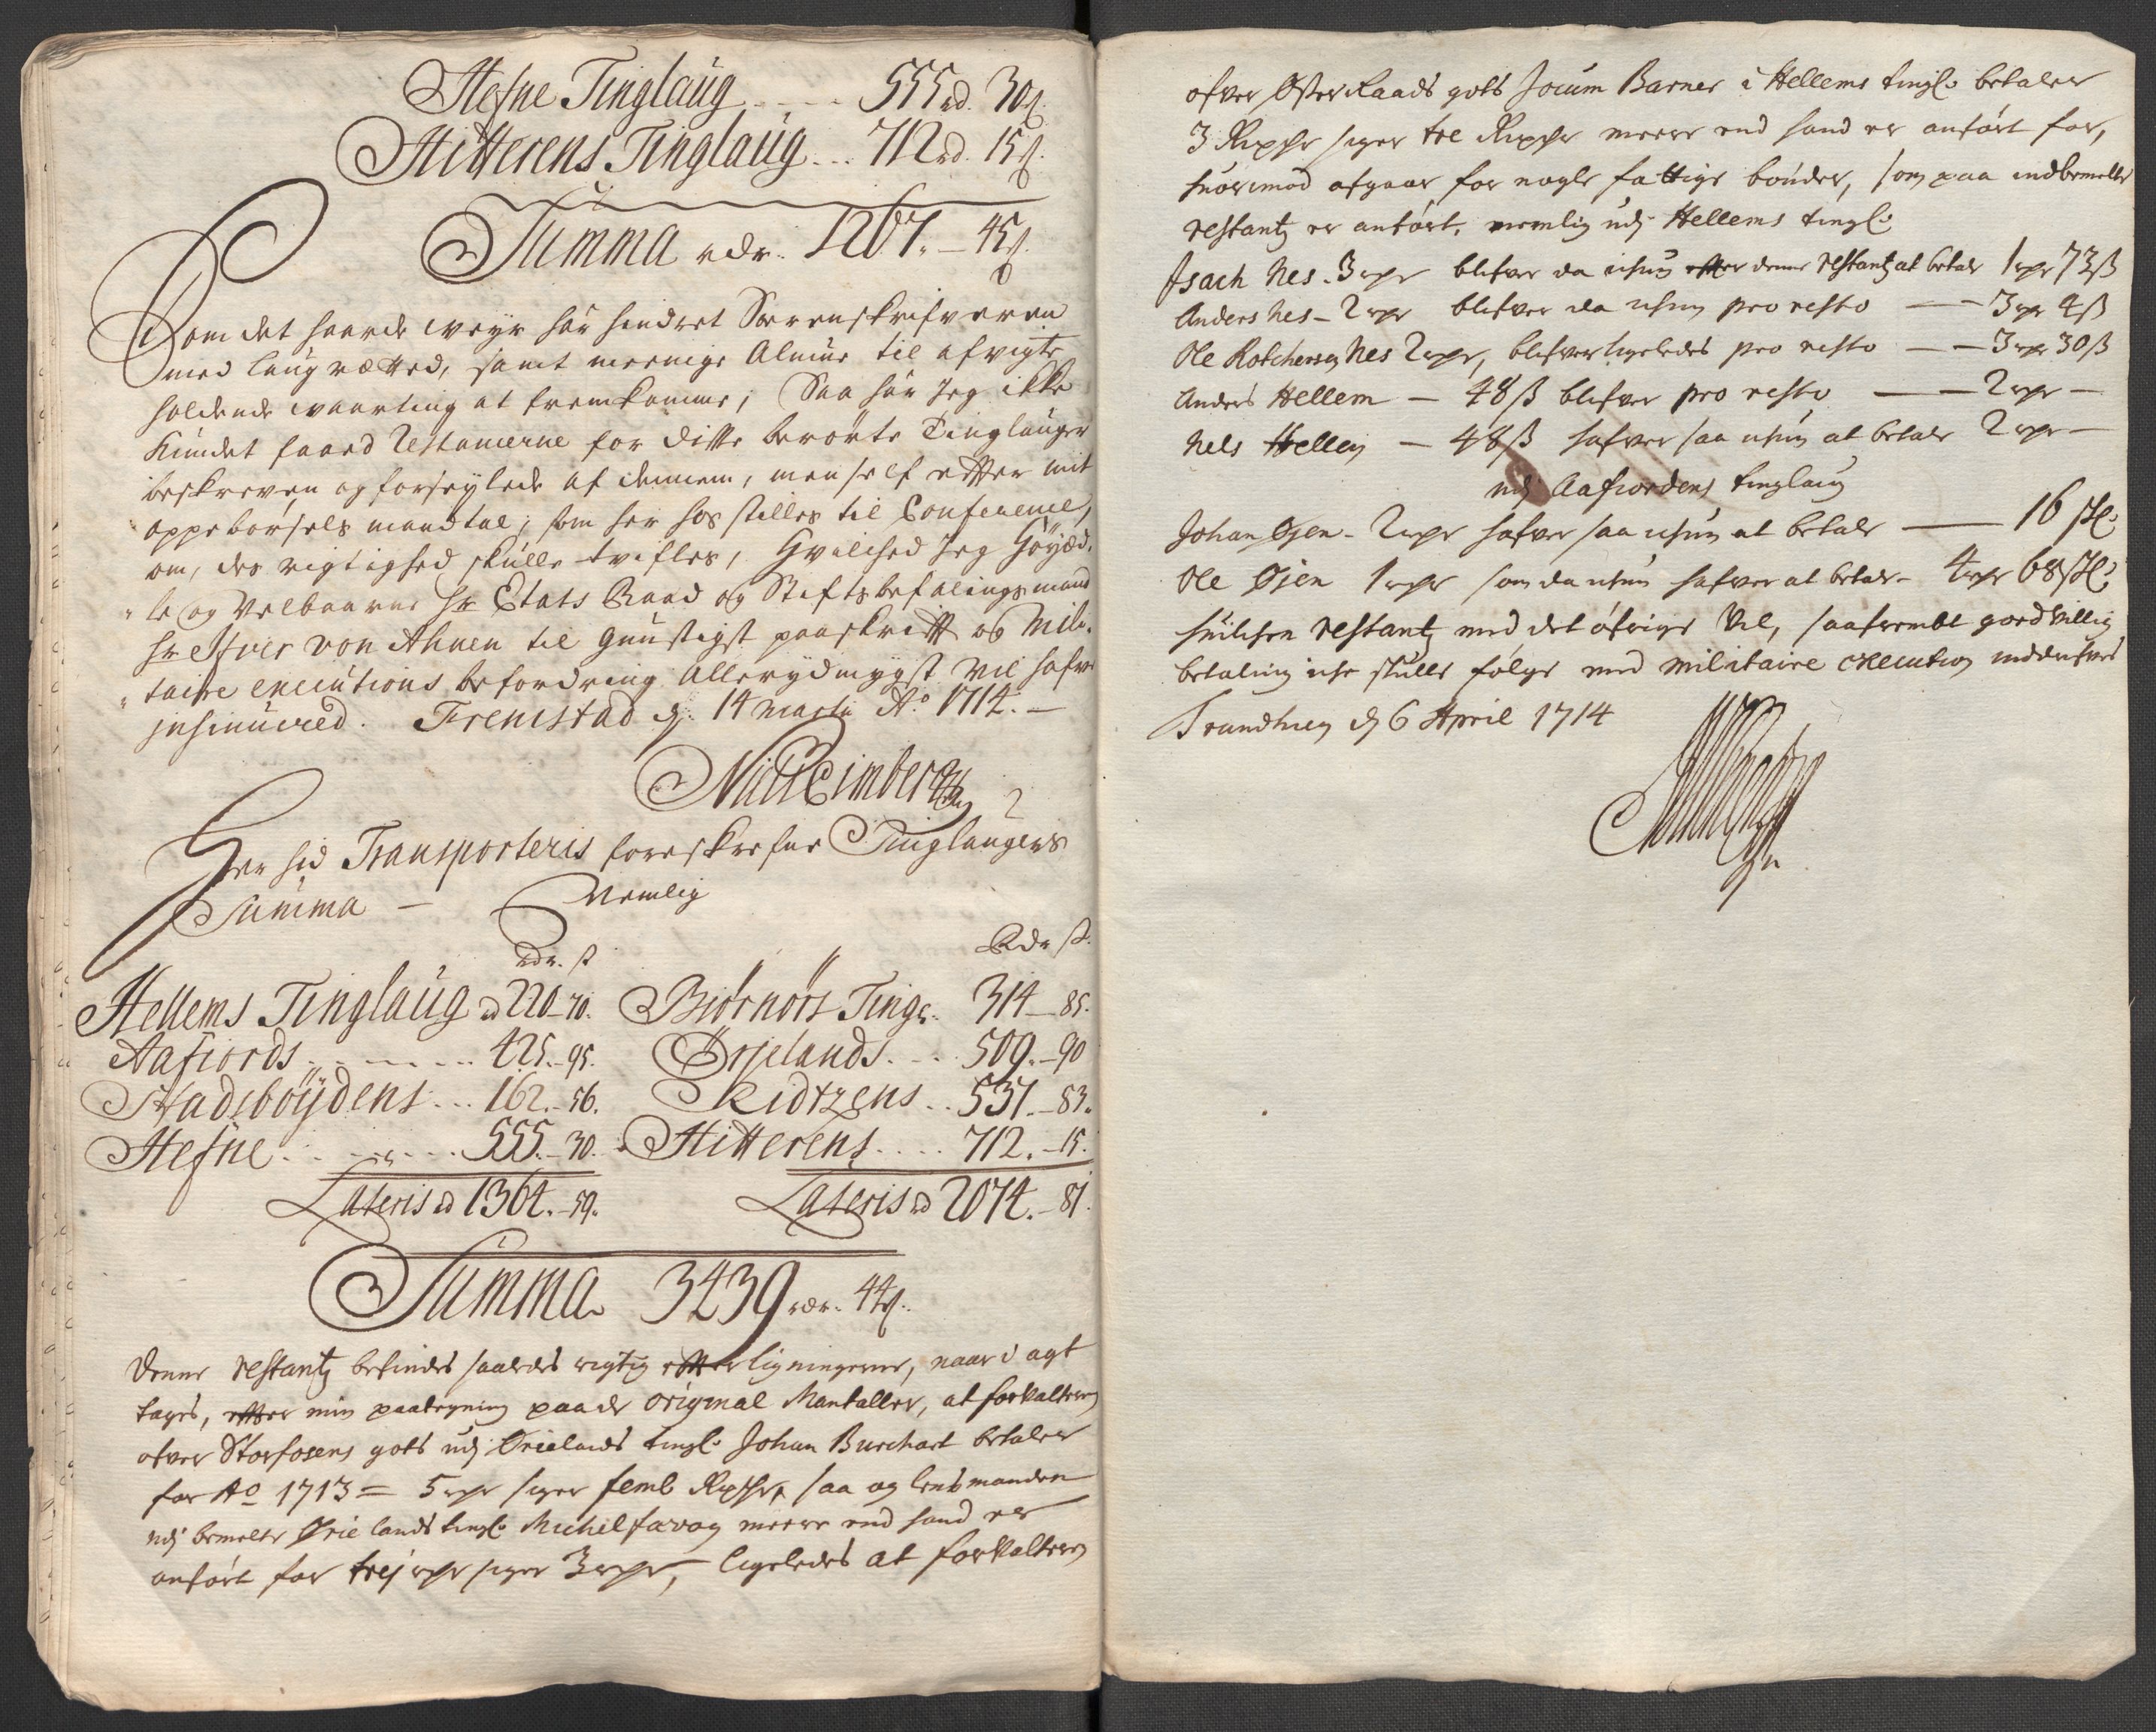 Hefne Tinglaüg - - - - 555 rd. 30 ß.
Hitterens Tinglaüg ... 712 rd. 15 ß.
Summa rdr. 1267. - 45 ß.
Som det haarde weyr har hindret Sorenskrifveren
med laugretted, samt meenige Almue til afvigte
holdende waarting at fremkomme; Saa har Jeg ikke
kundet faaed Restancerne for diße berörte Tinglauger
beskreven og forseylede af dennem, men self efter mit
oppebörsels mandtal, som her hos stilles til Conference,
om, des rigtighed skulle tvifles, Hvilched Jeg Höyæd-
le og Velbaarne Hr Etats Raad og Stiftsbefalingsmand
Hr Ifver von Ahnen til gunstigst paaskrifft og Mili-
taire executions befordring Allerydmygst vil hafve
insinuered. Fremstad d. 14 Martij Ao 1714. -
Her hid Transporteris foreskrefne Tinglaugers
Summa - Nemlig
rdr. ß Rdr ß.
Hellems Tinglaüg rd 220 - 70. Biörnörs Tingl. 314 - 85.
Aafiords . . . . . 425. - 95. Örjelands . . . . 509. - 90
Stadsböÿdens ... 162. - 56. Skidtzens .. 537. - 83.
Hefne . . . . . . 555. - 30. Hitterens .... 712. - 15.
Lateris rd 1364. - 59. Lateris rd 2074. - 81.
Summa 3439 rdr. 44 ß.
Denne Restantz befindes saaledes rigtig efter ligningerne, naar i agt
tages, efter min paategning paa de original Mantaller, at forvalteren
ofver Storfosens gots udj Ørielands tingl. Johan Burchart betaler
for Ao 1713 = 5 rdr siger femb Rixdlr, saa og lensmanden
udj bemelte Ørielands tingl. Michel meere end hand er
anfört for trej rdr siger 3 rdr, ligeledes at forvalteren
ofver Østeraads gots Jocum Barner i Hellems tingl. betaler
3 Rixdlr siger tre Rixdlr meere end hand er anfört for,
huorimod afgaar for nogle fattige bönder, som paa indbemelte
restantz er anfört, nemlig udj Hellems tingl.
Isach Nes. 3 rdr blifver da ichun efter denne restantz at betale 1 rdr 73 ß
Anders Nes - 2 rdr blifver da ichun pro resto — 3 rdr 4 ß
Ole Nes 2 rdr, blifver ligeledes pro resto — 3 rdr 30 ß
Anders Hellem — 48 ß blifver pro resto — 2 rdr —
Nels Hellem — 48 ß hafver saa ichun at betale 2 rdr —
udj Aafiordens tinglaug
Johan Øjen - 2 rdr hafver saa ichun at betale — 16 ß
Ole Øjen 1 rdr som da ichun hafver at betale - 4 rdr 68 ß
huilchen restantz med det öfrige vel, saafremt goedvillig
betaling iche skulle fölge med militaire execution inddrifves
Trundhiem d 6 April 1714